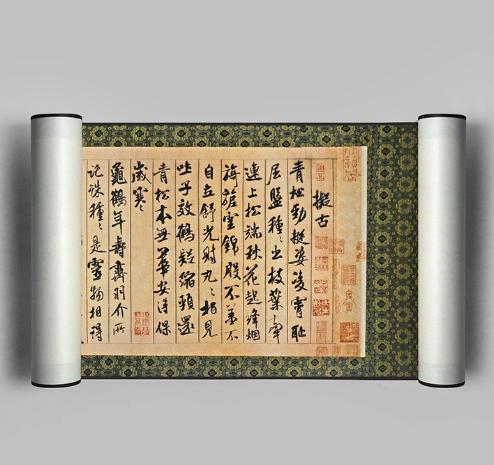 擬古
青松勁挺姿凌霄恥
屈盤種々出枝葉牽
連上松端秋花起絳烟
旖旎雲錦殷不羞不
自立舒光射丸々柏見
吐子效鶴疑縮頸還
青松本無華安得保
歲寒
龜鶴年壽齊羽介所
託殊種々是靈物相得